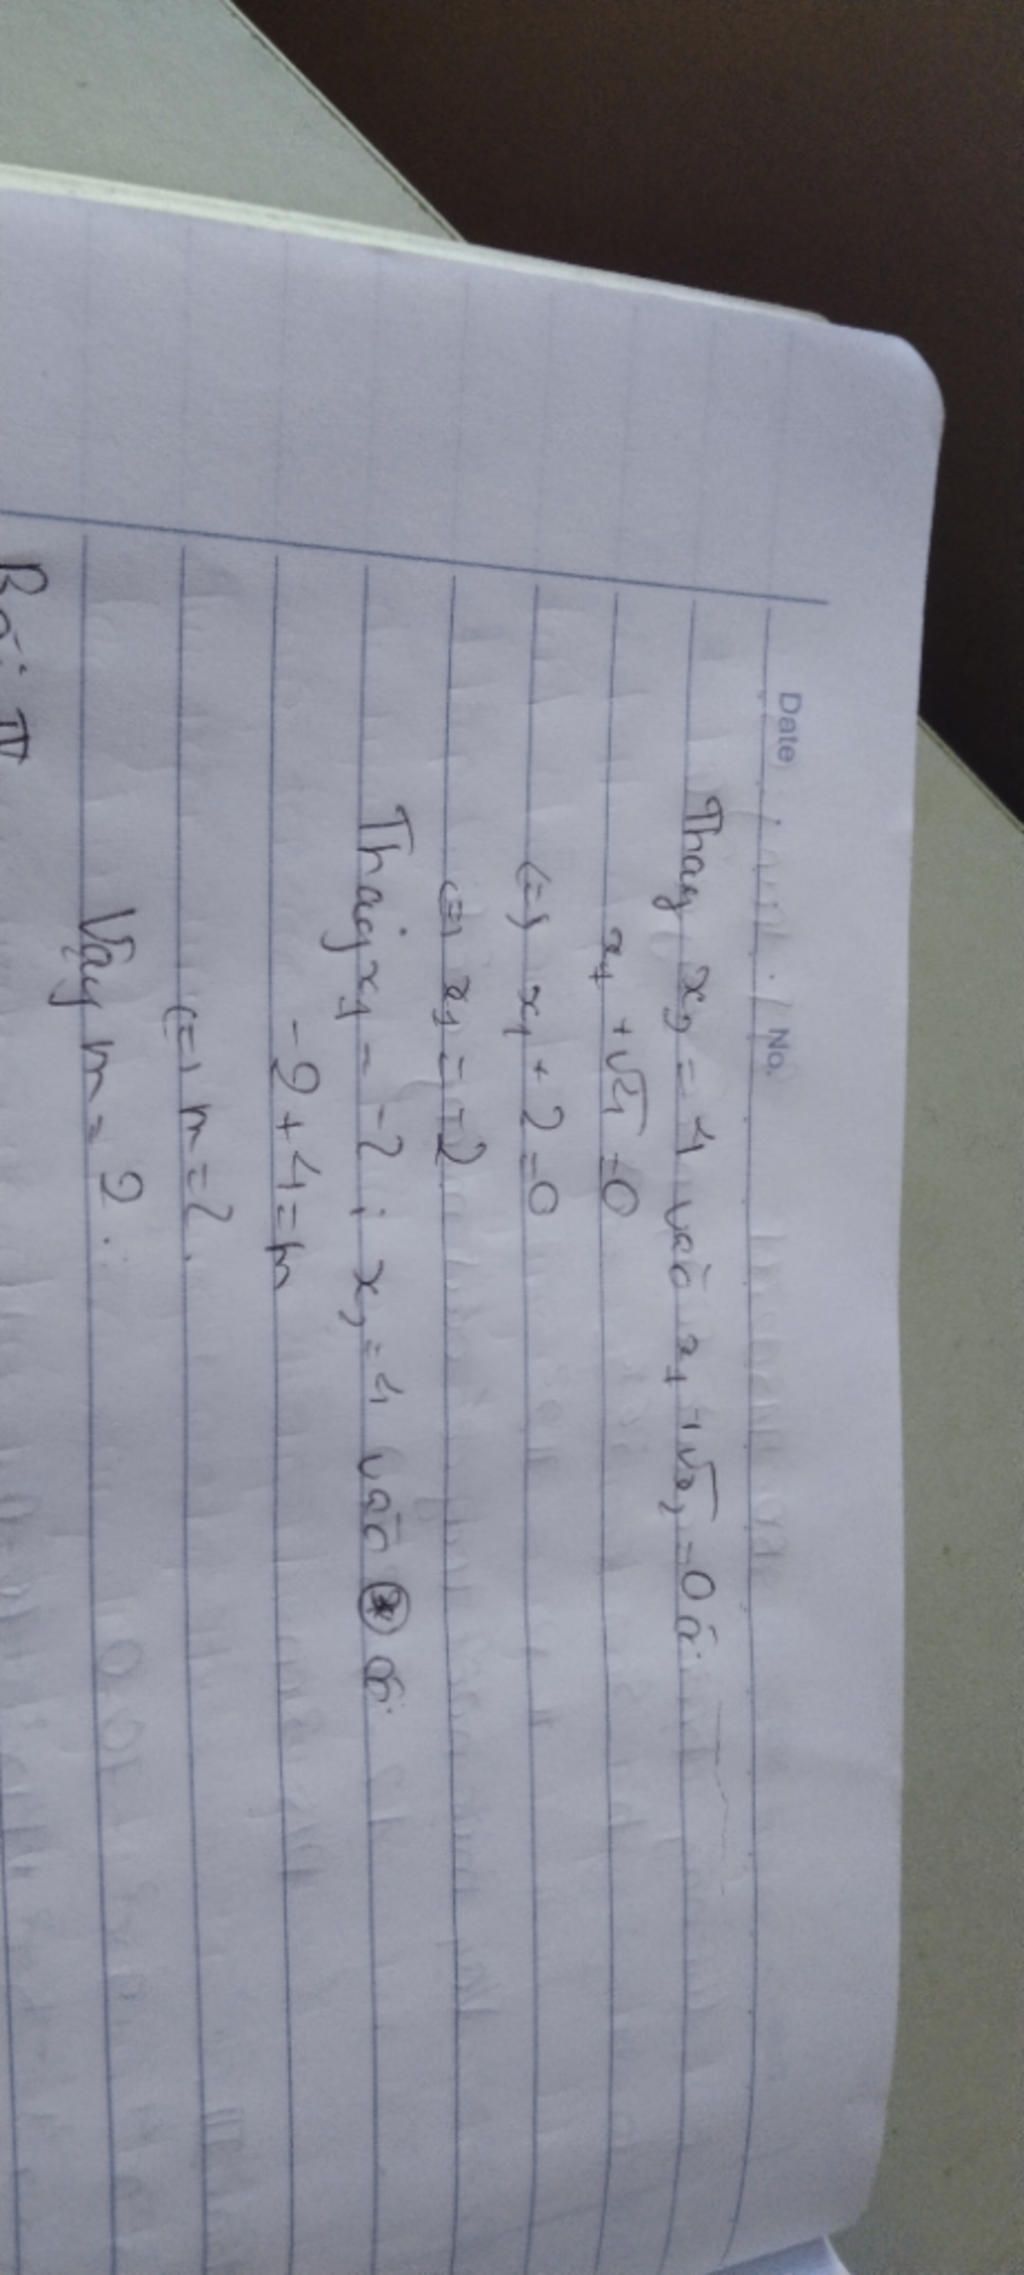 Date No.
Thay x₂ = 4 vào x₁ + √x₂ = 0 có
x₁ + √4 = 0
(=) x₁ + 2 = 0
(=) x₁ = -2
Thay x₁ = -2 ; x₂ = 4 vào (*) có
-2 + 4 = m
(=) m = 2.
Vậy m = 2.
Bài IV